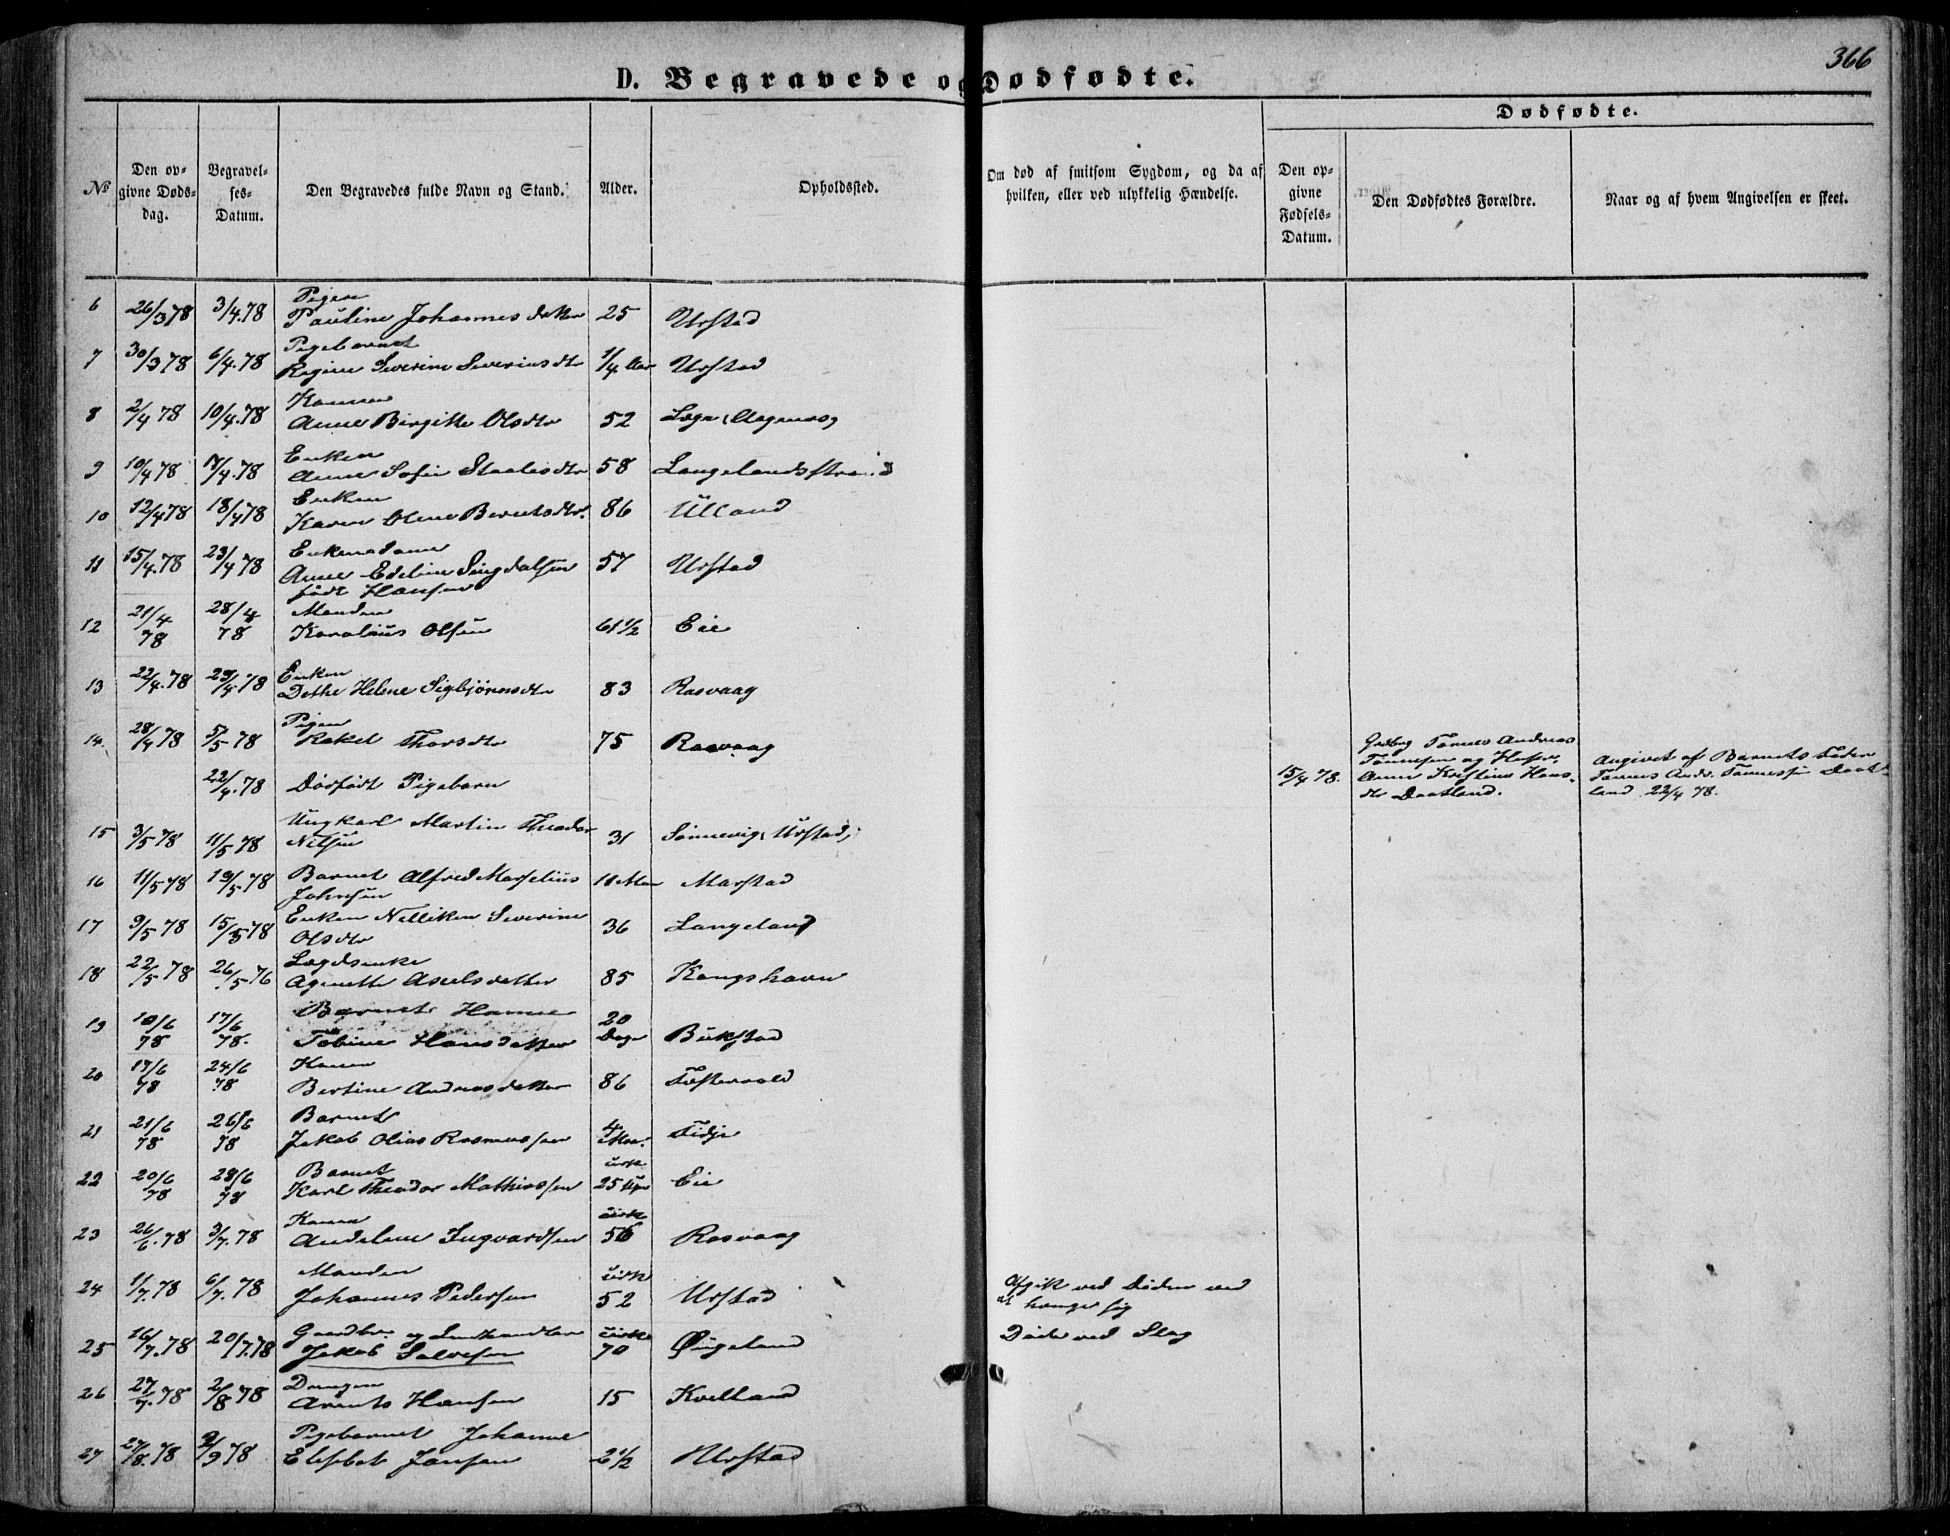 366
D. Begravede og Dødfødte.
Dødfødte.
No
Den opgivne Dødsdag.
Begravelses-Datum.
Den Begravedes fulde Navn og Stand.
Alder.
Opholdssted.
Om død af smitsom Sygdom, og da af hvilken, eller ved ulykkelig Hændelse.
Den opgivne Fødsels-Datum.
Den Dødfødtes Forældre.
Naar og af hvem Angivelsen er skeet.
6 26/3 78 3/4.78 Pigen
Pauline Johannesdatter 25 Urstad
7 30/3 78 6/4.78 Pigebarnet
Regine Severine Severinsdtr 1/4 Aar Urstad
8 2/4 78 10/4.78 Konen
Anne Birgitte Olsdtr 52
9 10/4 78 17/4.78 Enken
Anne Sofie Staalesdtr 58 Langelandsstrand
10 12/4 78 18/4 78 Enken
Karen Olene Berntsdtr. 86 Ulland
11 15/4.78 23/4 78 Enkemadame
Anne Edeline Sirgdalsen
født Hansen 57 Urstad
12 21/4 78 28/4 78 Manden
Karolius Olsen 61 1/2 Eie
13 22/4.78 29/4 78 Enken
Dethe Helene Sigbjørnsdtr 83 Rasvaag
14. 28/4 78 5/5 78 Pigen
Rakel Thorsdtr 75 Rasvaag
22/4.78 Dødfødt Pigebarn
15/4 78. Grdbrg Tønnes Andreas
Tønnesen og Hustr.
Anne Kristine Hansdtr Daatland.
Angivet af Barnets Fader
Tønnes Andr. Tønnessen Daatland 22/4 78.
15 3/5 78 11/5 78 Ungkarl Martin Theodor
Nilsen 31 Sønnevig, Urstad,
16 11/5 78 19/5 78 Barnet Alfred Marselius
Johnsen Marstad
17 9/5 78 15/5 78 Enken Nilliken Severine
Olsdtr 36 Langeland
18 22/5 78 26/5 76 Lægdsenke
Aginette Axelsdatter 85 Kongshavn
19 10/6 78 17/6 78. Barnet Hanne
Tobine Hansdatter 20 Dage Bukstad
20 17/6 78 24/6 78 Konen
Bertine Andreasdatter 86
21 21/6 78 26/6 78 Barnet
Jakob Olias Rasmussen 4 Fidje
22 20/6 78 28/6 78 Barnet
Karl Theodor Mathiassen cirk 25 Eie
23 26/6.78 3/7.78 Konen
Andeline Ingvardsen cirk 56 Rasvaag
24 1/7.78 6/7.78 Manden
Johannes Pedersen cirk 52 Urstad
Afgik ved Døden ved
at hænge sig
25 16/7.78 20/7.78 Gaardbr. og Landhandler
Jakob Salvesen cirk 70 Øigeland
Døde ved Slag
26 27/7.78 2/8 78 Drengen
Arents Hansen 15 Kvelland
27 27/8.78 2/9 78 Pigebarnet Johanne
Elisbet Jansen 2 1/2 Urstad